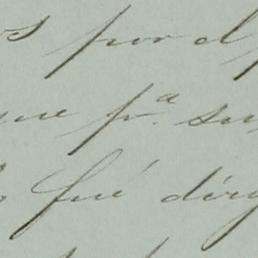 s por el p
ue pr.ª su
o fué dirig